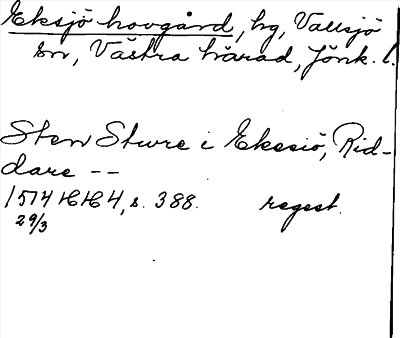 Eksjö hovgård, hg, Vallsjö
sn, Västra härad, Jönk. l.
Sten Sture i Ekesiö, Rid-
dare --
1514 HH 4, s. 388. regest.
29/3